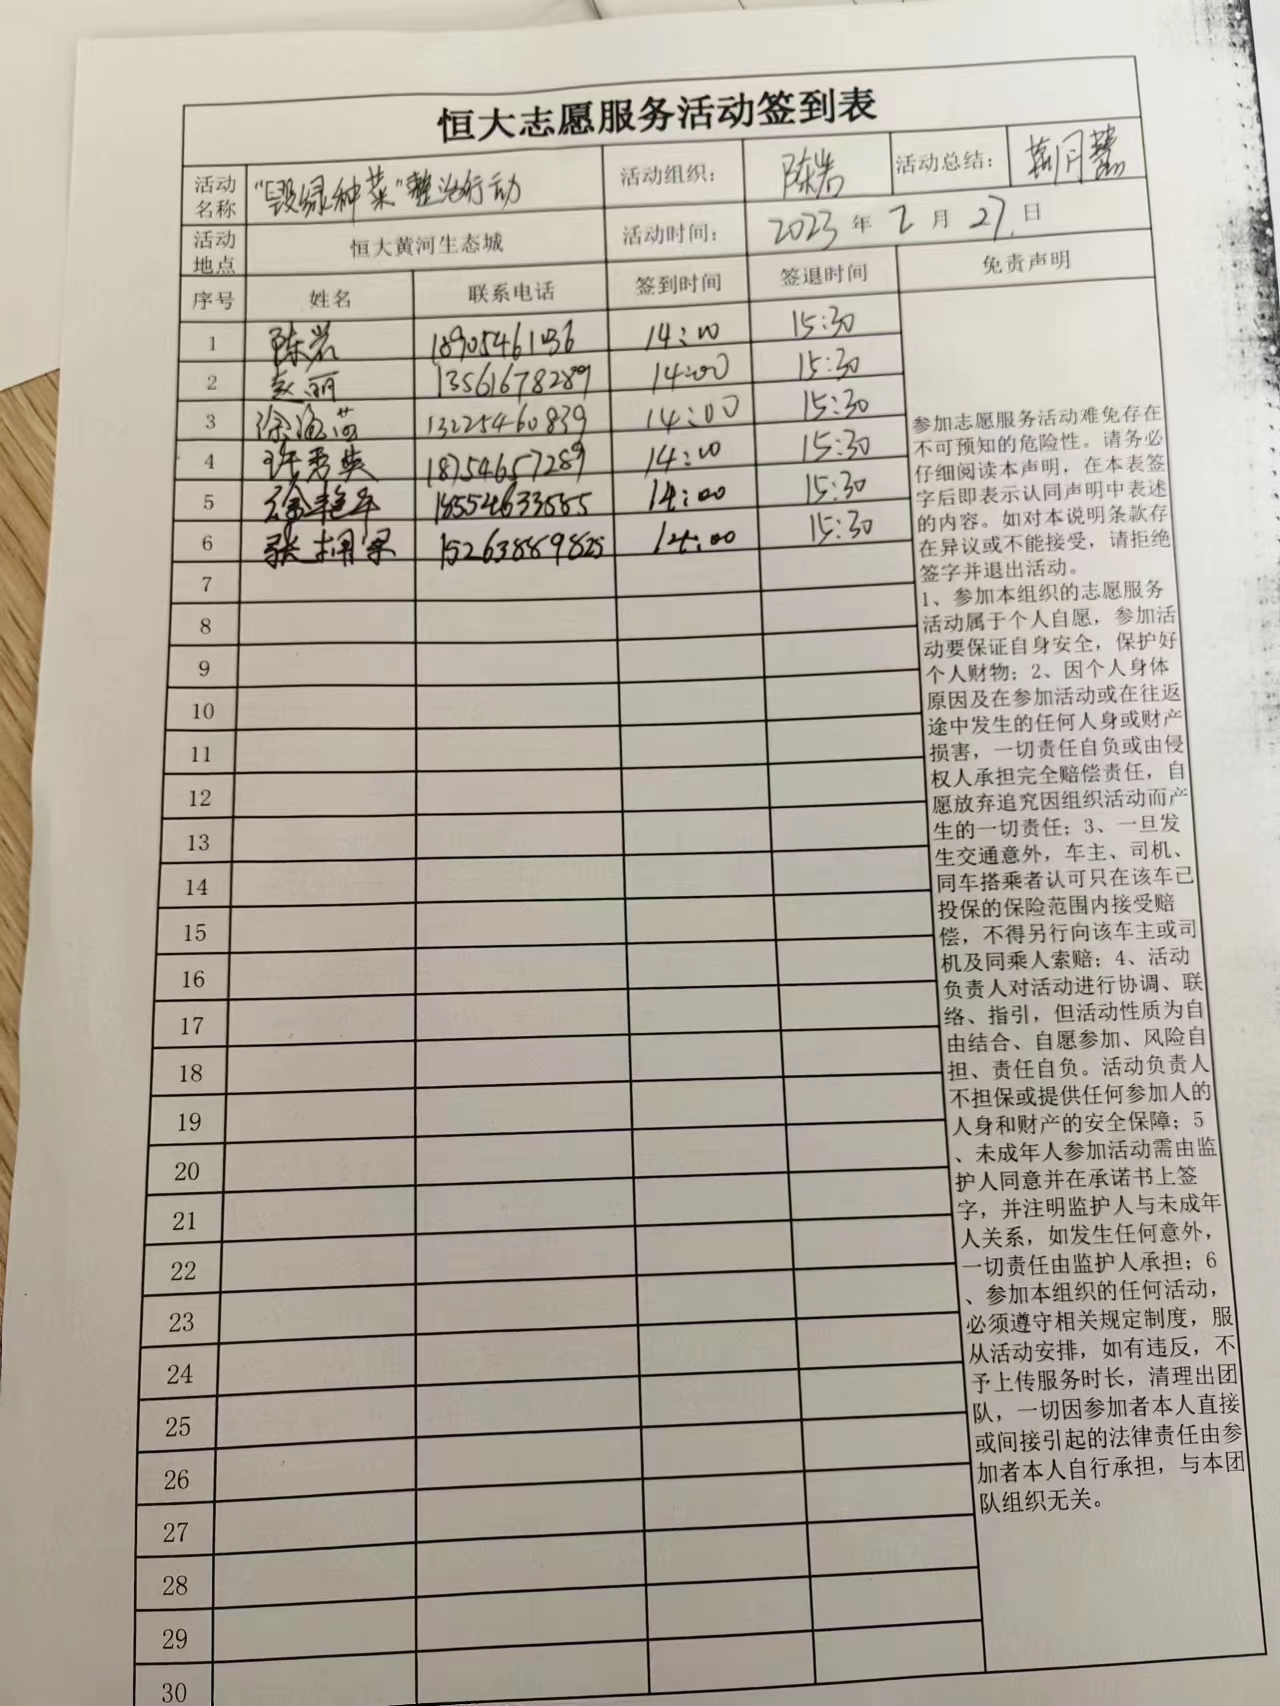 恒大志愿服务活动签到表
活动名称 "毁绿种菜"整治行动 活动组织： 陈岩 活动总结：
活动地点 恒大黄河生态城 活动时间： 2023年2月27日
序号 姓名 联系电话 签到时间 签退时间 免责声明
1 陈岩 18905461036 14:00 15:30
2 赵丽 13561678289 14:00 15:30
3 13225460839 14:00 15:30
4 许秀英 18754657289 14:00 15:30
5 徐艳军 14:00 15:30
6 15263889825 14:00 15:30
7
8
9
10
11
12
13
14
15
16
17
18
19
20
21
22
23
24
25
26
27
28
29
30
参加志愿服务活动难免存在
不可预知的危险性。请务必
仔细阅读本声明，在本表签
字后即表示认同声明中表述
的内容。如对本说明条款存
在异议或不能接受，请拒绝
签字并退出活动。
1、参加本组织的志愿服务
活动属于个人自愿，参加活
动要保证自身安全，保护好
个人财物；2、因个人身体
原因及在参加活动或在往返
途中发生的任何人身或财产
损害，一切责任自负或由侵
权人承担完全赔偿责任，自
愿放弃追究因组织活动而产
生的一切责任；3、一旦发
生交通意外，车主、司机、
同车搭乘者认可只在该车已
投保的保险范围内接受赔
偿，不得另行向该车主或司
机及同乘人索赔；4、活动
负责人对活动进行协调、联
络、指引，但活动性质为自
由结合、自愿参加、风险自
担、责任自负。活动负责人
不担保或提供任何参加人的
人身和财产的安全保障；5
、未成年人参加活动需由监
护人同意并在承诺书上签
字，并注明监护人与未成年
人关系，如发生任何意外，
一切责任由监护人承担；6
、参加本组织的任何活动，
必须遵守相关规定制度，服
从活动安排，如有违反，不
予上传服务时长，清理出团
队，一切因参加者本人直接
或间接引起的法律责任由参
加者本人自行承担，与本团
队组织无关。